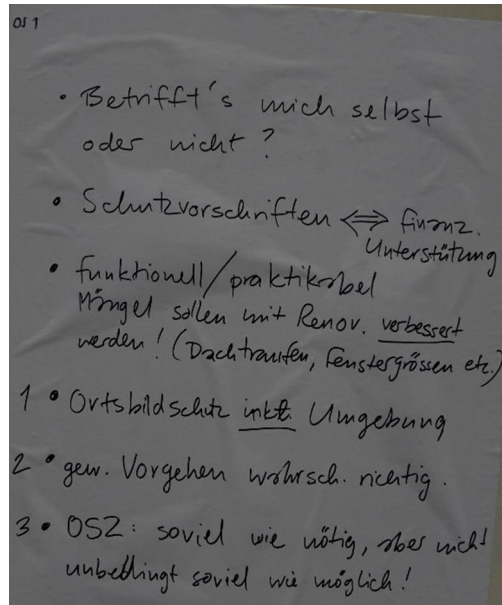 OS 1
• Betrifft's mich selbst
oder nicht?
• Schutzvorschriften ⇔ finanz.
Unterstützung
• funktionell/praktikabel
Mängel sollen mit Renov. verbessert
werden! (Dachtraufen, Fenstergrössen etc.)
1 • Ortsbildschutz inkl. Umgebung
2 • gew. Vorgehen wahrsch. richtig.
3 • OSZ: soviel wie nötig, aber nicht
unbedingt soviel wie möglich!